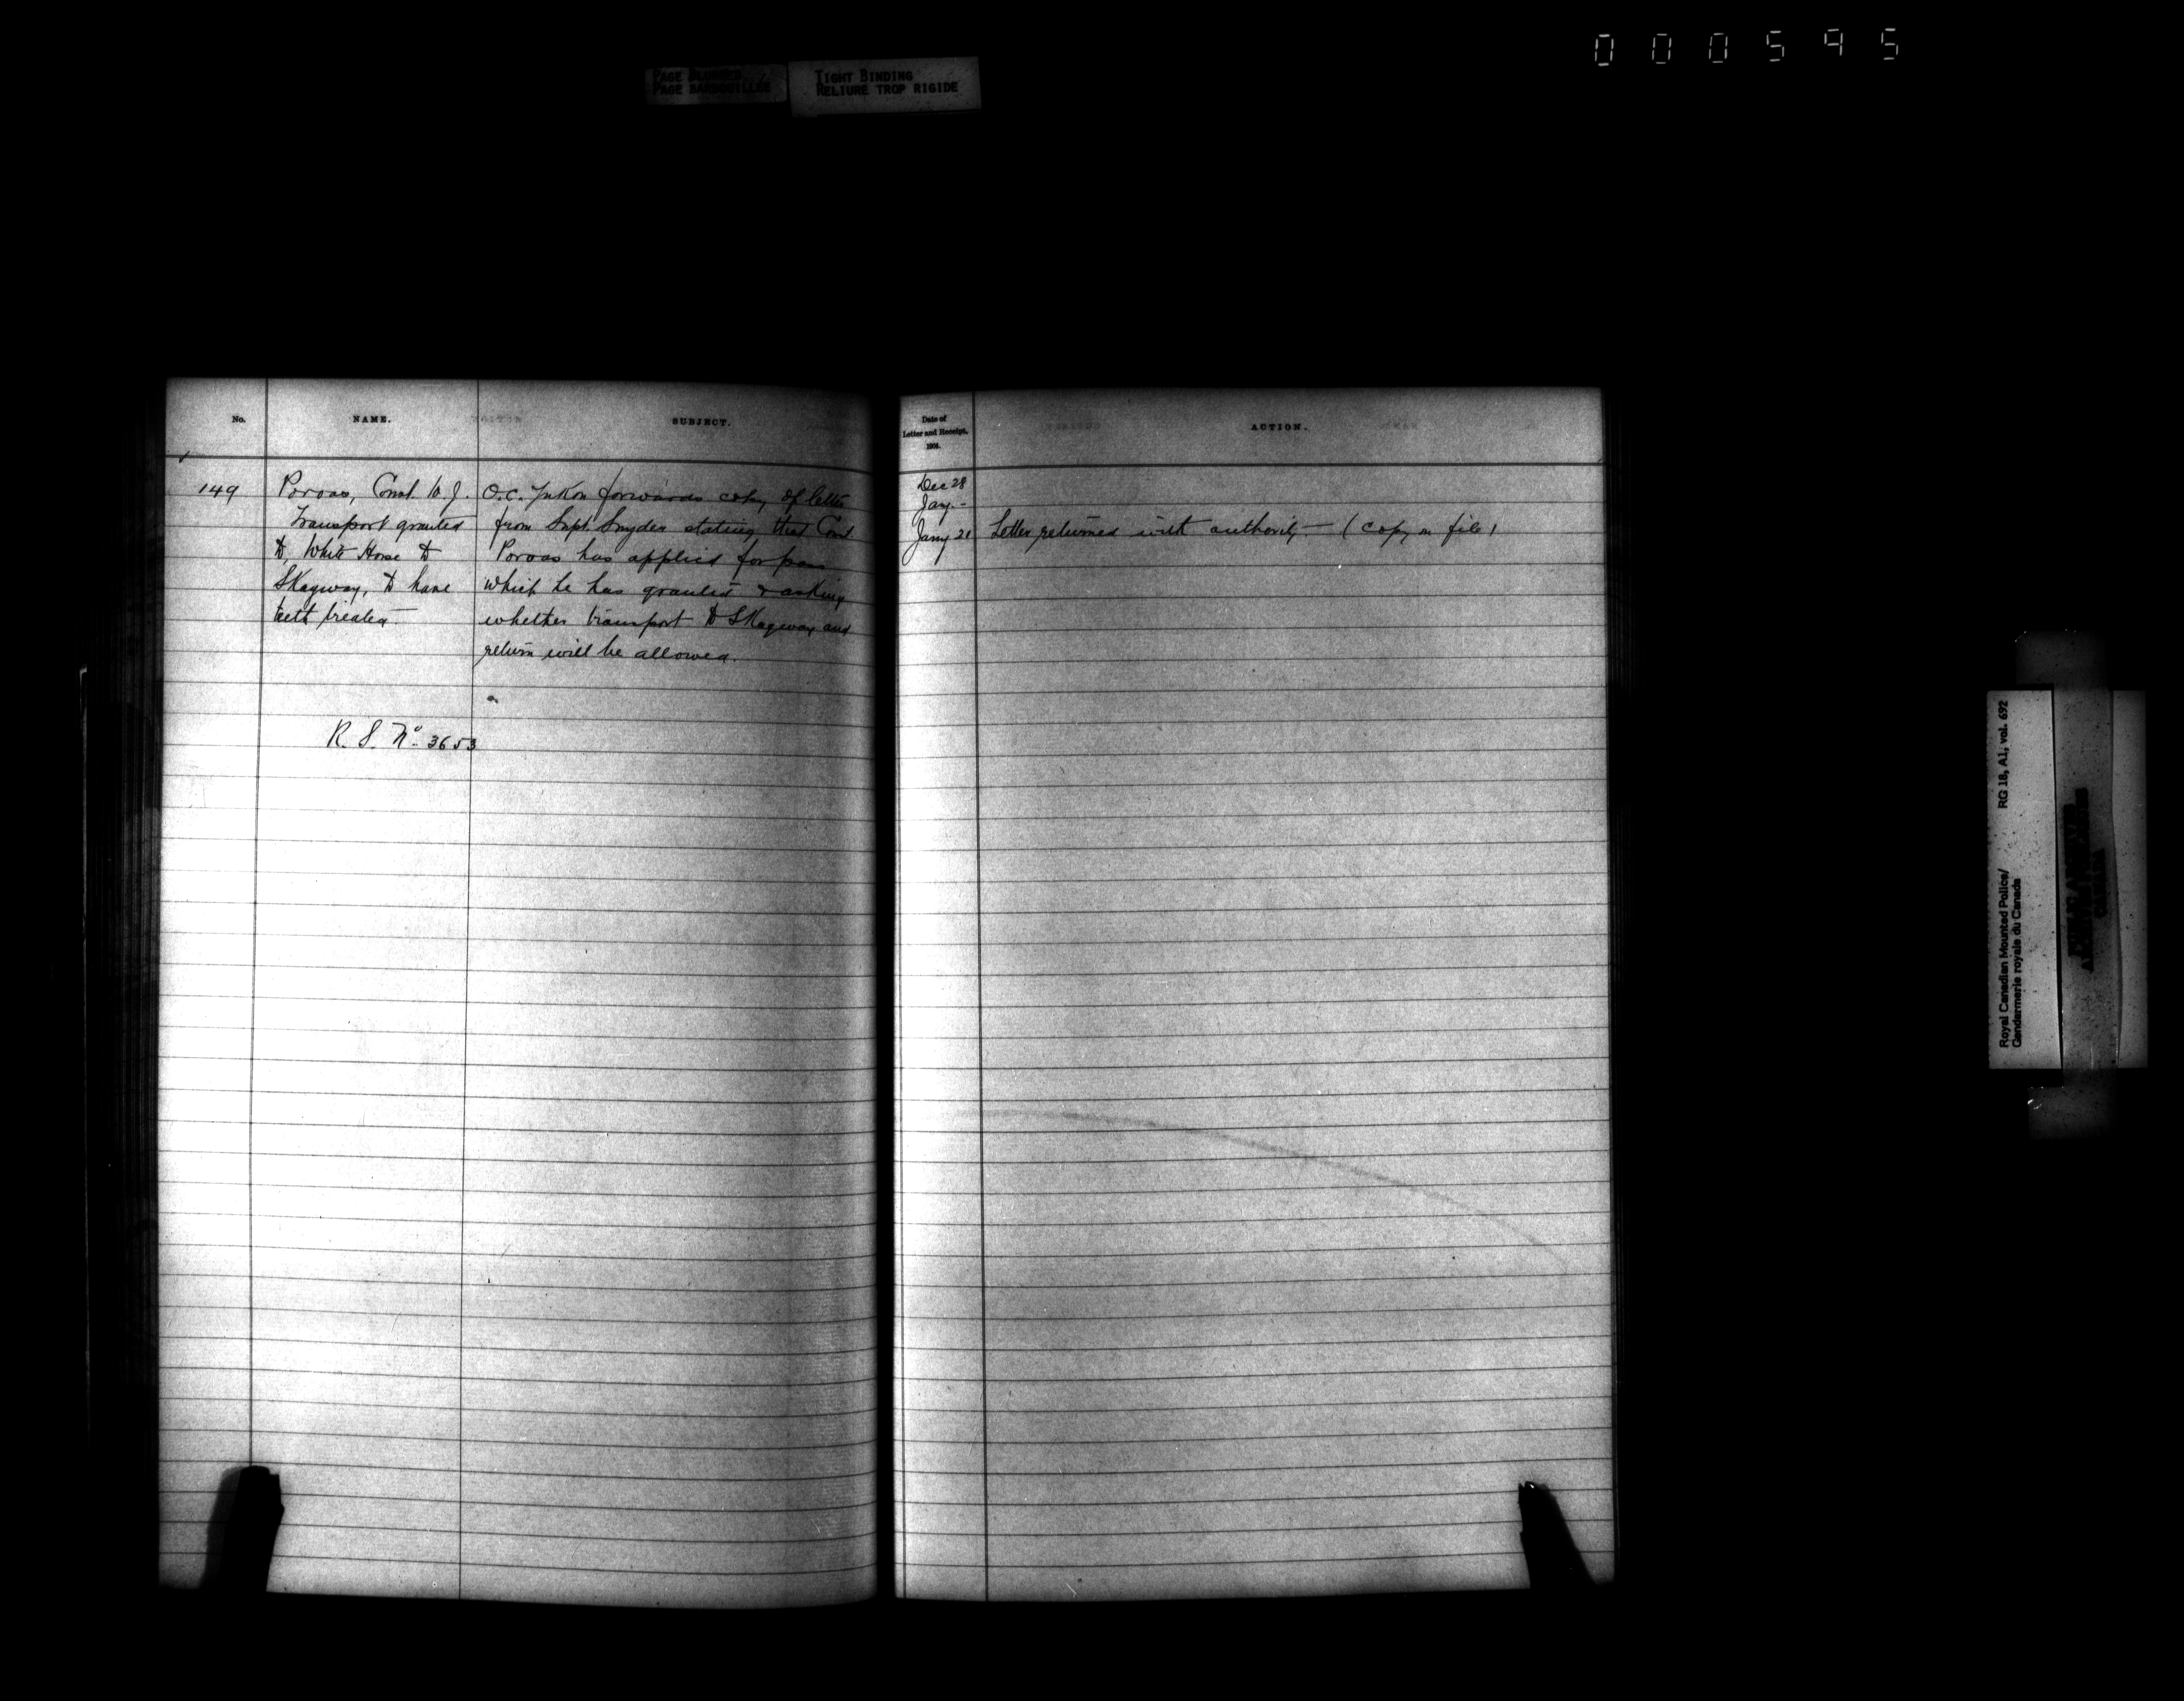 000595
PAGE BLURRED
PAGE BARBOUILLÉE
TIGHT BINDING
RELIURE TROP RIGIDE
No.
NAME.
SUBJECT.
149
Poroas, Const. W. J.
Transport granted
to, White Horse to
Skagway, to have
teeth treated —
R. S. No. 3653
O.C. Yukon forwards copy of letter
from Supt Snyder stating that Const
Poroas has applied for pass
which he has granted & asking
whether transport to Skagway and
return will be allowed.
Date of
Letter and Receipt,
190
ACTION.
Dec 28
Jay. -
Jany 21 Letter returned with authority — (copy on file)
Royal Canadian Mounted Police/
Gendarmerie royale du Canada
RG 18, A1, vol. 692